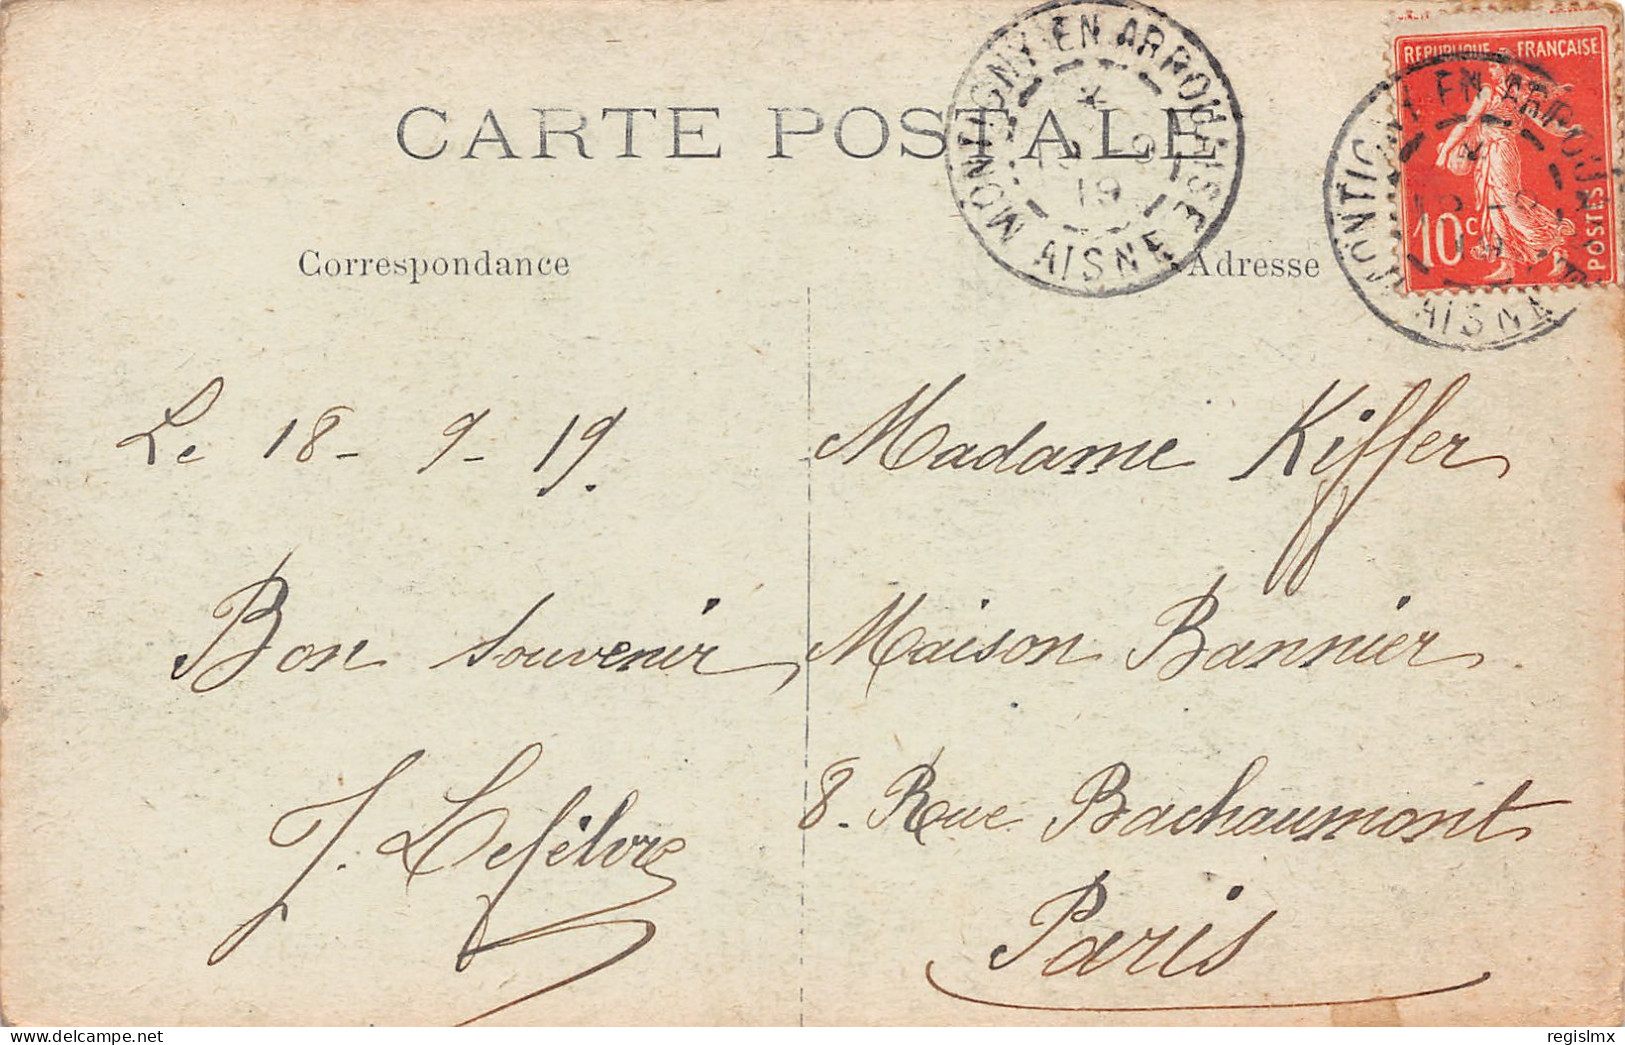 CARTE POSTALE
MONTIGNY-EN-ARROUAISE
19
AISNE
REPUBLIQUE FRANÇAISE
10c
POSTES
MONTIGNY-EN-ARROUAISE
19
AISNE
Correspondance
Adresse
Le 18-9-19.
Bon souvenir
J. Lefèbvre
Madame Kiffer
Maison Bannier
8. Rue Bachaumont
Paris
delcampe.net
regislmx